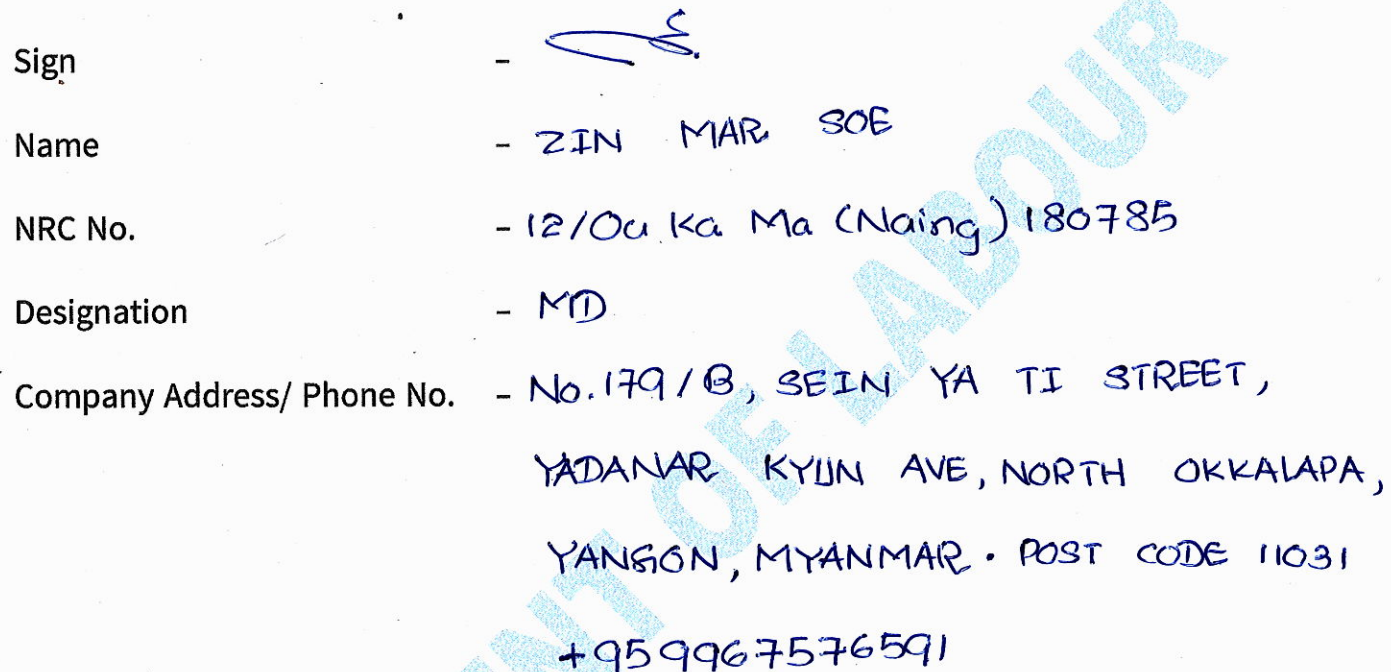 Sign -
Name - ZIN MAR SOE
NRC No. - 12/Ou Ka Ma (Naing) 180785
Designation - MD
Company Address/ Phone No. - No.179/B, SEIN YA TI STREET,
YADANAR KYUN AVE, NORTH OKKALAPA,
YANGON, MYANMAR. POST CODE 11031
+959967576591
NT OF LABOUR